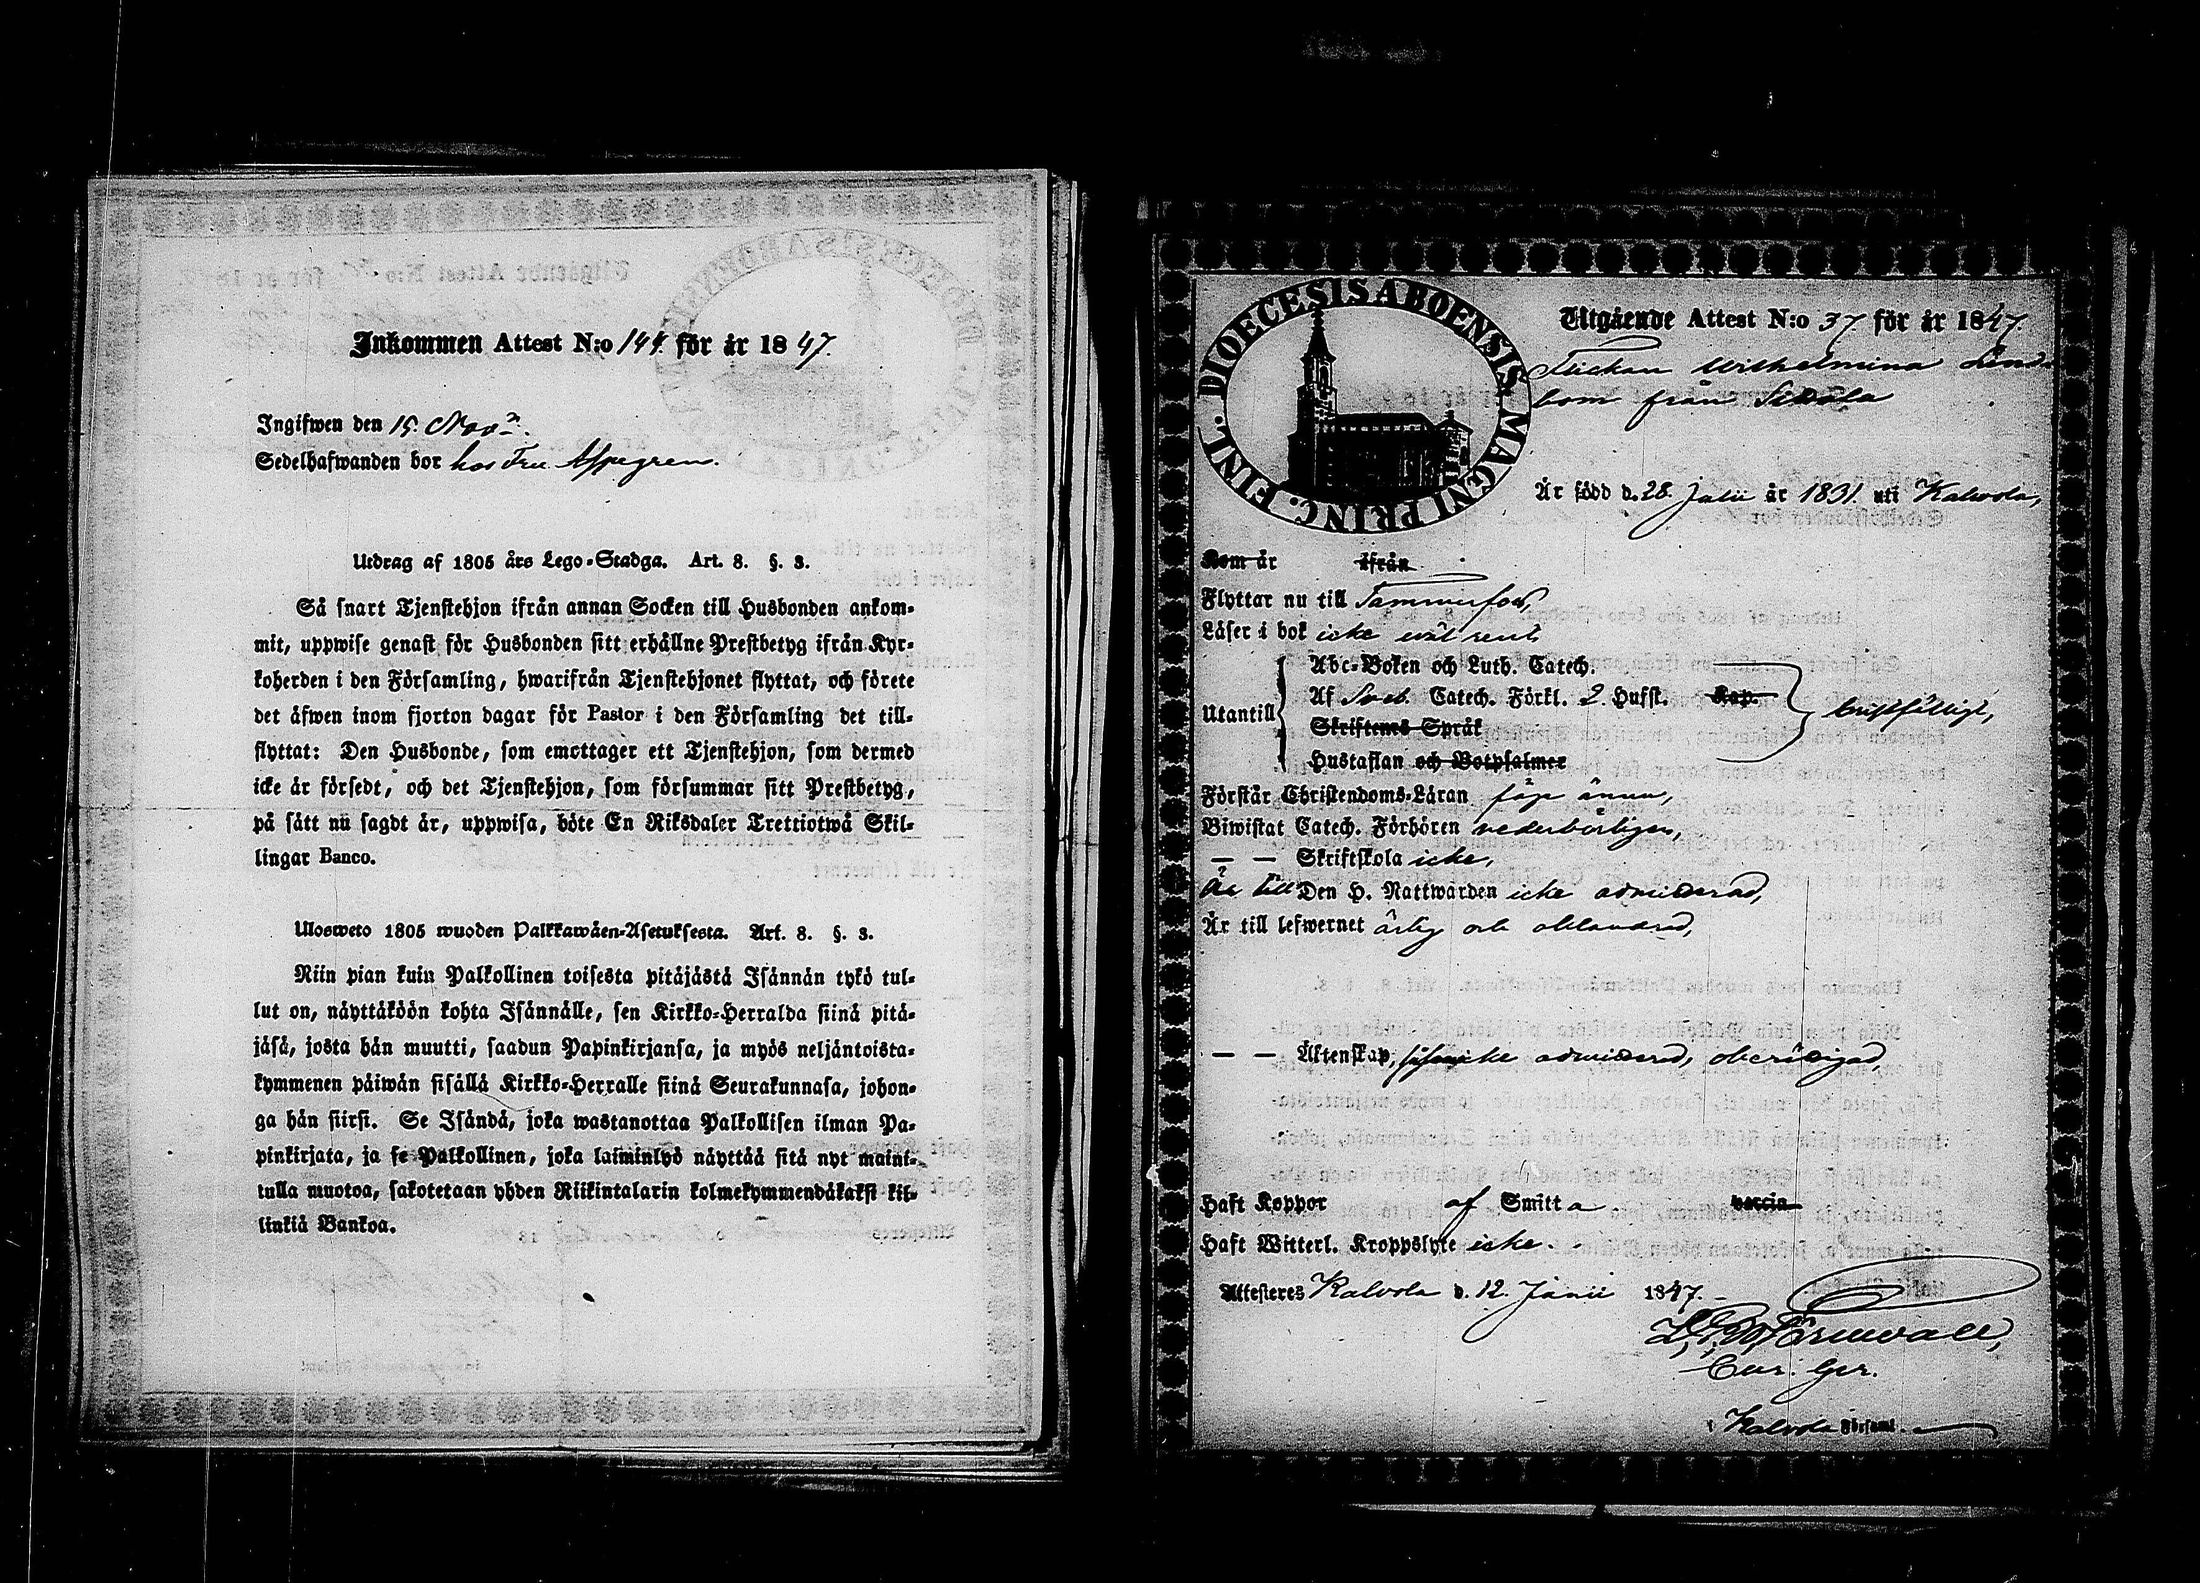 Inkommen Attest N:o 144. för år 1847.
Ingifwen den 15. Nov:r.
Sedelhafwanden bor hos Fru Aspegren.
Utdrag af 1805 års Lego-Stadga. Art. 8. §. 3.
Så snart Tjenstehjon ifrån annan Socken till Husbonden ankom-
mit, uppwise genast för Husbonden sitt erhållne Prestbetyg ifrån Kyr-
koherden i den Församling, hwarifrån Tjenstehjonet flyttat, och förete
det äfwen inom fjorton dagar för Pastor i den Församling det till-
flyttat: Den Husbonde, som emottager ett Tjenstehjon, som dermed
icke är försedt, och det Tjenstehjon, som försummar sitt Prestbetyg,
på sätt nu sagdt är, uppwisa, böte En Riksdaler Trettiotwå Skil-
lingar Banco.
Ulosweto 1805 wuoden Palkkawäen-Asetuksesta. Art. 8. §. 3.
Niin pian kuin Palkollinen toisesta pitäjästä Isännän tykö tul-
lut on, näyttäköön kohta Isännälle, sen Kirkko-Herralda siinä pitä-
jäsä, josta hän muutti, saadun Papinkirjansa, ja myös neljäntoista-
kymmenen päiwän sisällä Kirkko-Herralle siinä Seurakunnasa, johon-
ga hän siirsi. Se Isändä, joka wastanottaa Palkollisen ilman Pa-
pinkirjata, ja se Palkollinen, joka laiminlyö näyttää sitä nyt maini-
tulla muotoa, sakotetaan yhden Riikintalarin kolmekymmendäkaksi kil-
linkiä Bankoa.
DIOECESIS ABOENSIS MAGNI PRINC. FINL.
Utgående Attest N:o 37 för år 1847.
Flickan Wilhelmina Lind-
bom från
Är född d. 28. Julii år 1831. uti Kalvola,
Kom år ifrån
Flyttar nu till Tammerfors,
Läser i bok icke wäl rent,
Abc-Boken och Luth. Catech.
Utantill Af Sveb. Catech. Förkl. 2. Hufst. Kap. bristfälligt,
Skriftenes Språk
Hustaflan och Botpsalmer
Förstår Christendoms-Läran föga ännu,
Biwistat Catech. Förhören vederbörligen,
— — Skriftskola icke,
Är till Den H. Nattwarden icke admitterad,
Är till lefwernet ärlig och oklandrad,
— — Äktenskap, icke admitterad,
Haft Koppor af Smitta vaccin
Haft Witterl. Kroppslyte icke.
Attesteres Kalvola d. 12. Junii 1847.
i Kalvola Församl.